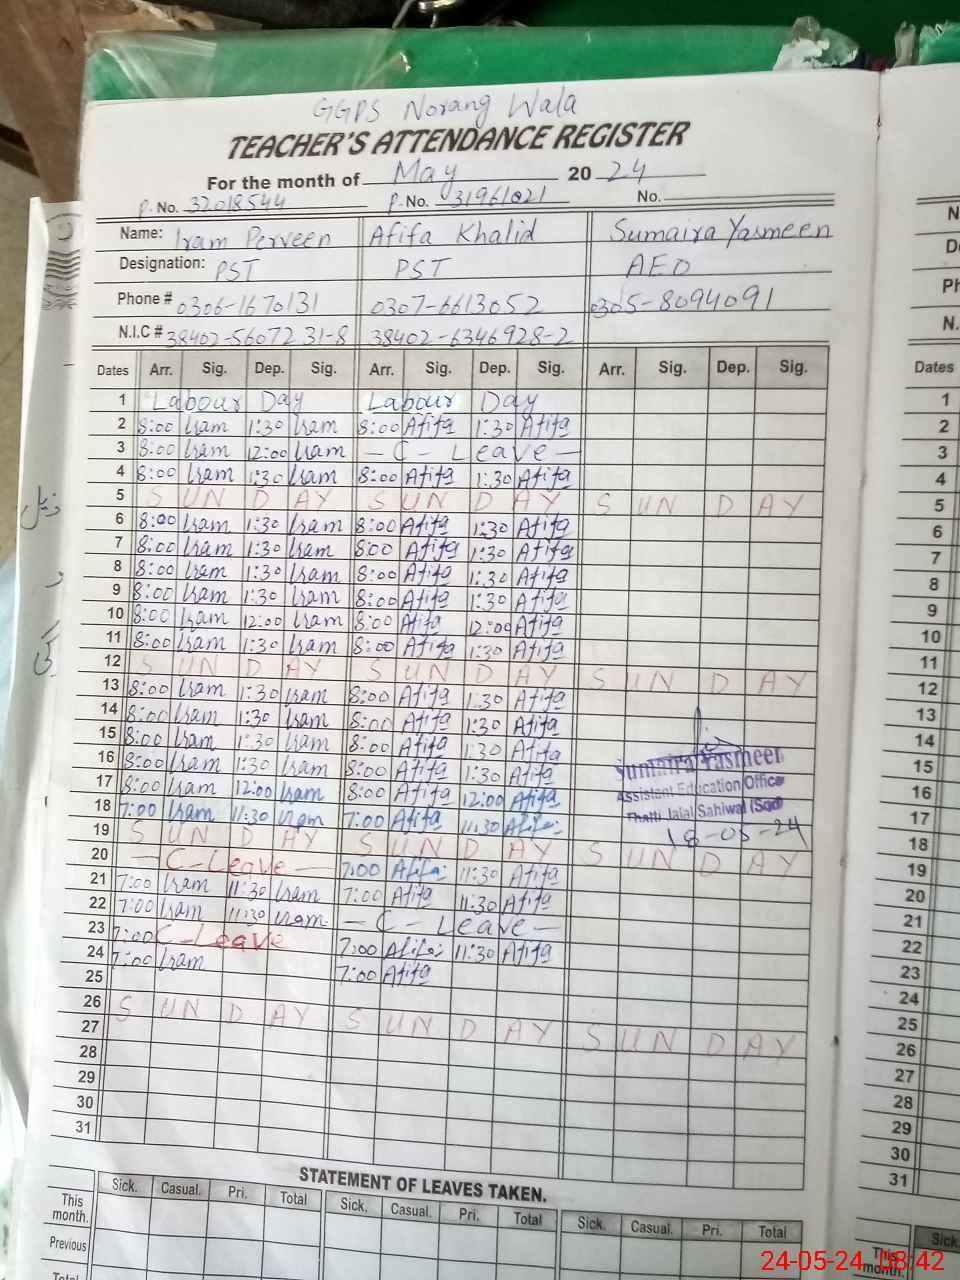 GGPS Norang Wala
TEACHER'S ATTENDANCE REGISTER
For the month of May 2024
P.No. 32018544 P.No. 31961021 No.
Name: Iram Perveen Afifa Khalid Sumaira Yasmeen
Designation: PST PST AEO
Phone # 0306-1670131 0307-6613052 0305-8094091
N.I.C # 38402-5607231-8 38402-6346928-2
Dates Arr. Sig. Dep. Sig. Arr. Sig. Dep. Sig. Arr. Sig. Dep. Sig. Dates
1 Labour Day Labour Day 1
2 8:00 Iram 1:30 Iram 8:00 Afifa 1:30 Afifa 2
3 8:00 Iram 12:00 Iram - C - Leave - 3
4 8:00 Iram 1:30 Iram 8:00 Afifa 1:30 Afifa 4
5 SUNDAY SUNDAY SUNDAY 5
6 8:00 Iram 1:30 Iram 8:00 Afifa 1:30 Afifa 6
7 8:00 Iram 1:30 Iram 8:00 Afifa 1:30 Afifa 7
8 8:00 Iram 1:30 Iram 8:00 Afifa 1:30 Afifa 8
9 8:00 Iram 1:30 Iram 8:00 Afifa 1:30 Afifa 9
10 8:00 Iram 12:00 Iram 8:00 Afifa 12:00 Afifa 10
11 8:00 Iram 1:30 Iram 8:00 Afifa 1:30 Afifa 11
12 SUNDAY SUNDAY SUNDAY 12
13 8:00 Iram 1:30 Iram 8:00 Afifa 1:30 Afifa 13
14 8:00 Iram 1:30 Iram 8:00 Afifa 1:30 Afifa 14
15 8:00 Iram 1:30 Iram 8:00 Afifa 1:30 Afifa 15
16 8:00 Iram 1:30 Iram 8:00 Afifa 1:30 Afifa 16
17 8:00 Iram 12:00 Iram 8:00 Afifa 12:00 Afifa 17
18 7:00 Iram 11:30 Iram 7:00 Afifa 11:30 Afifa 18
Sumaira Yasmeen
Assistant Education Office
Thatti Jalal Sahiwal (Sgd)
18-05-24
19 SUNDAY SUNDAY SUNDAY 19
20 - C-Leave - 7:00 Afifa 11:30 Afifa 20
21 7:00 Iram 11:30 Iram 7:00 Afifa 11:30 Afifa 21
22 7:00 Iram 11:30 Iram - C - Leave - 22
23 7:00 C-Leave 7:00 Afifa 11:30 Afifa 23
24 7:00 Iram 7:00 Afifa 24
25 25
26 SUNDAY SUNDAY SUNDAY 26
27 27
28 28
29 29
30 30
31 31
STATEMENT OF LEAVES TAKEN.
Sick. Casual. Pri. Total Sick. Casual. Pri. Total Sick. Casual. Pri. Total Sick.
This month. This month.
Previous
Total
24-05-24 08:42